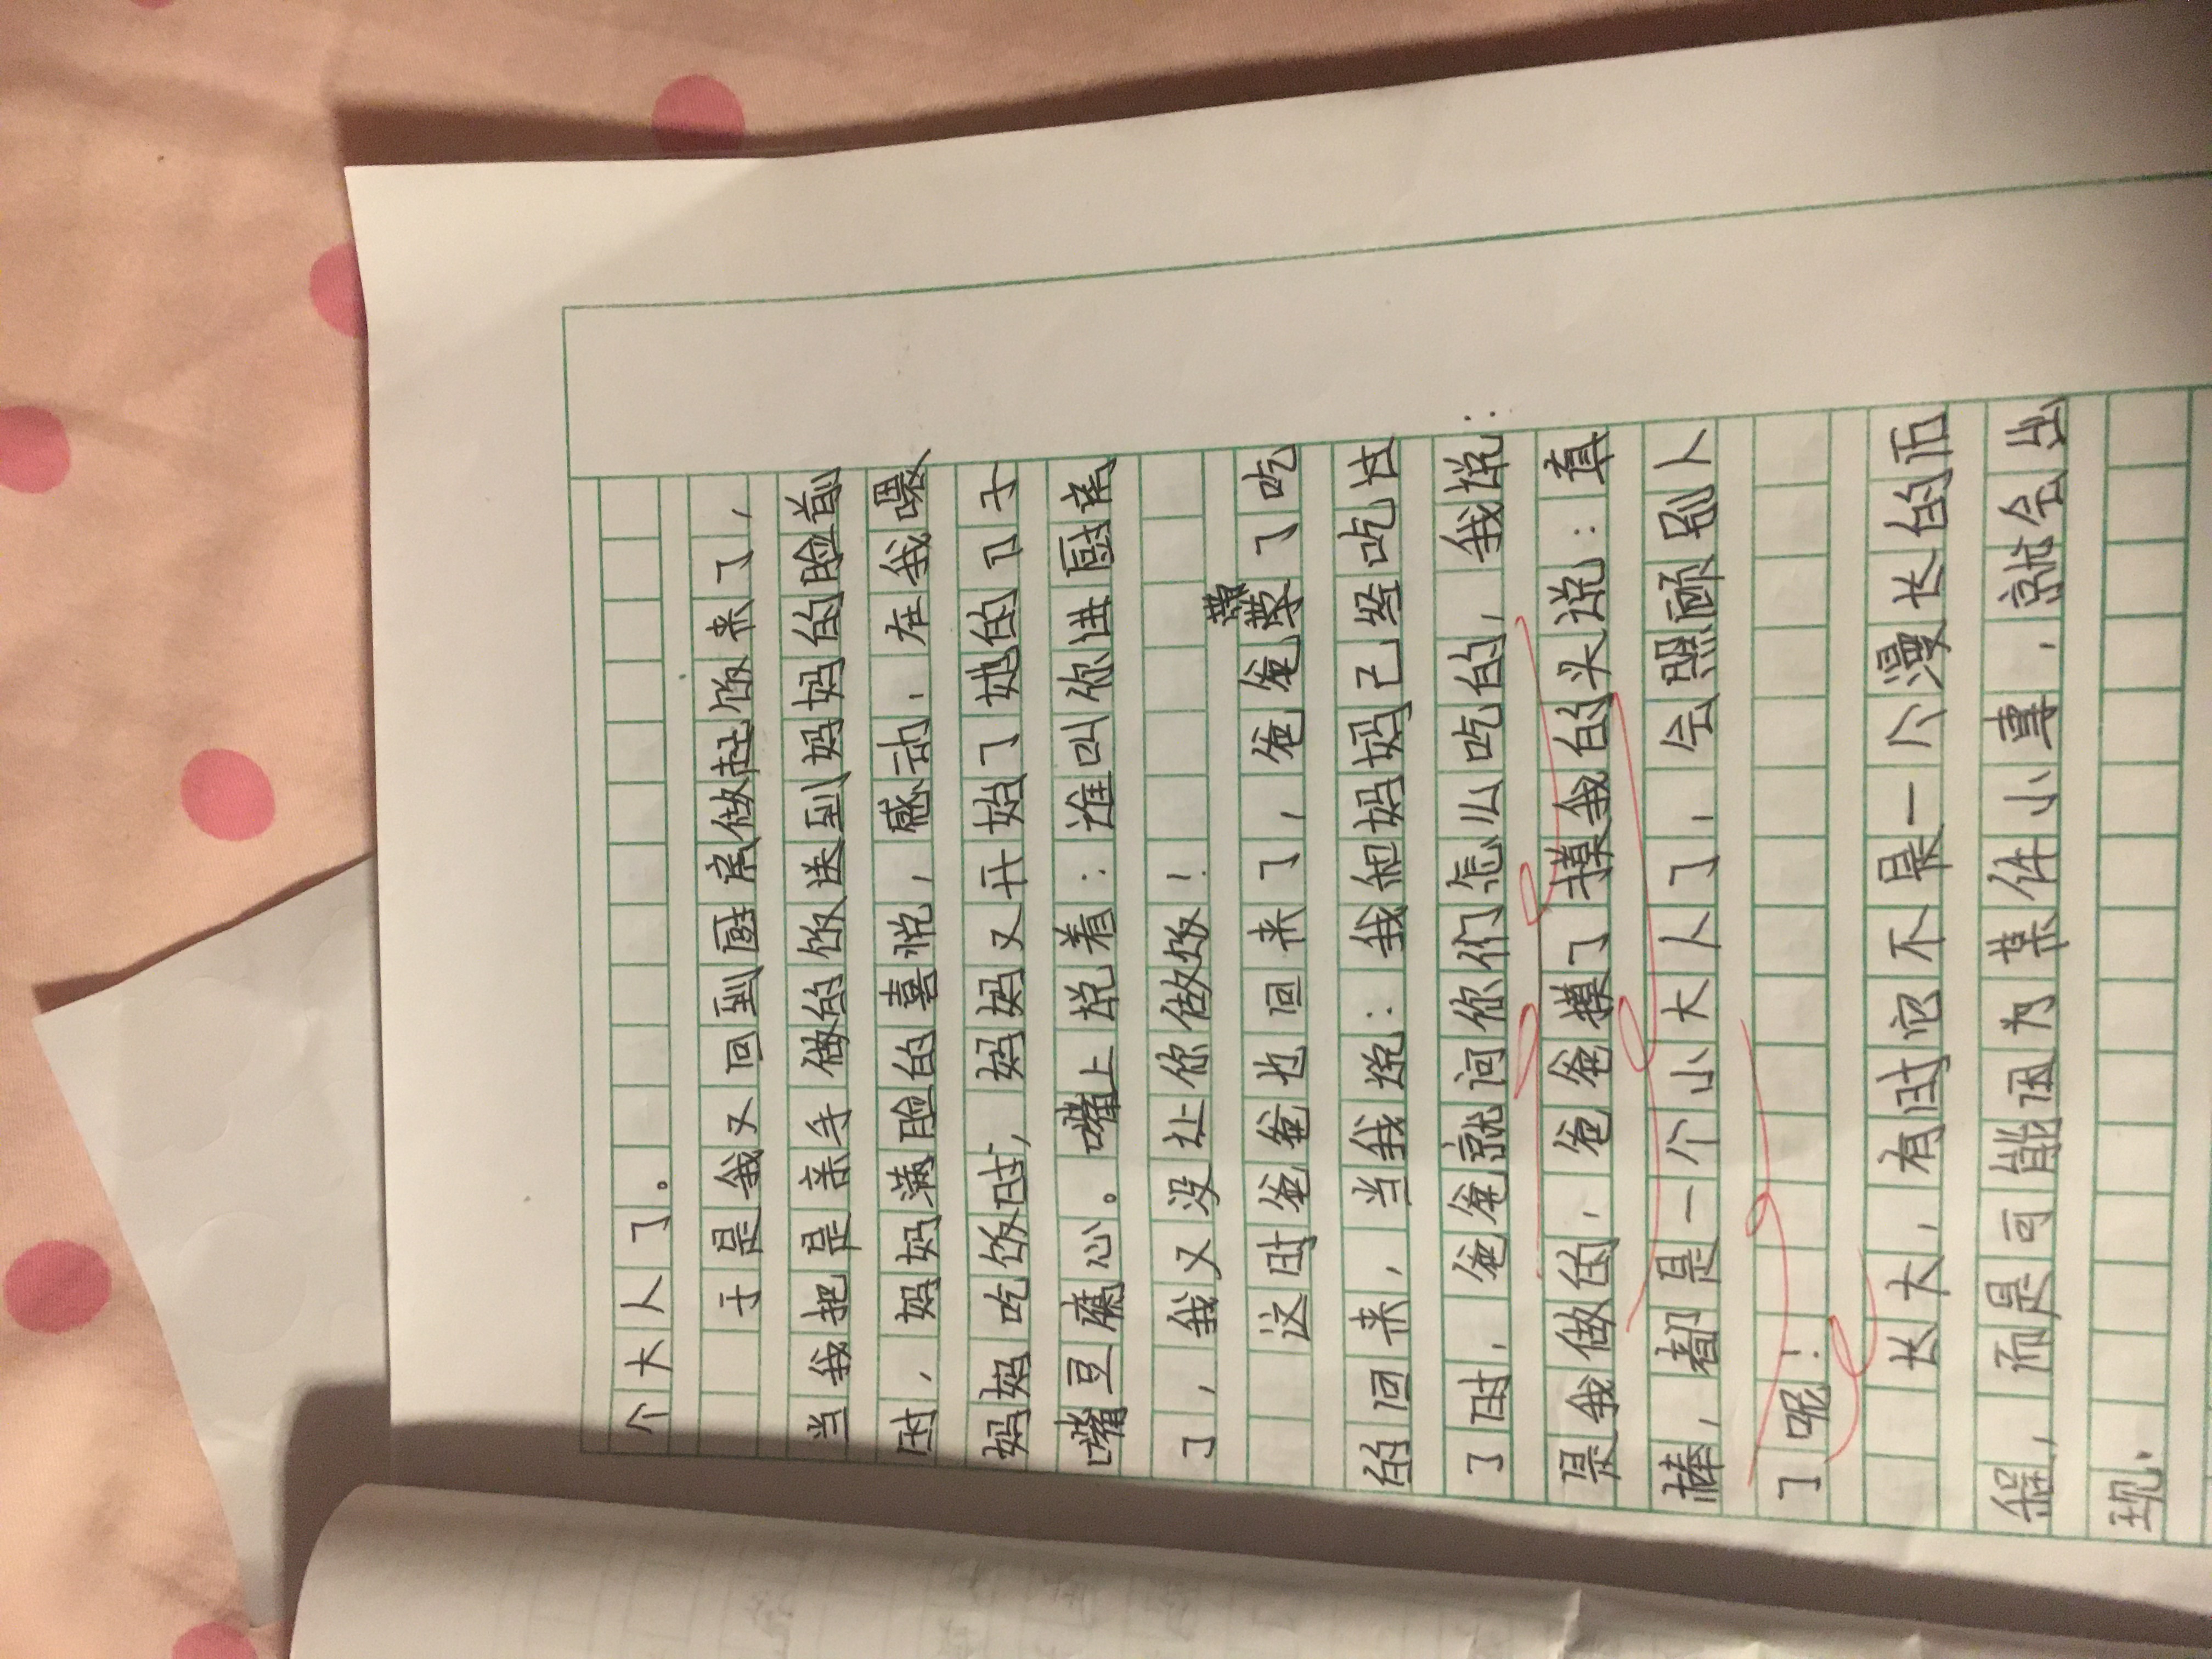 个大人了。
于是我又回到厨房做起饭来了，
当我把是亲手做的饭送到妈妈的脸前
时，妈妈满脸的喜悦，感动，在我喂
妈妈吃饭时，妈妈又开始了她的刀子
嘴豆腐心。嘴上说着：谁叫你进厨房
了，我又没让你做饭！
这时爸爸也回来了，爸爸带了吃
的回来，当我说：我和妈妈已经吃过
了时，爸爸就问你们怎么吃的，我说：
是我做的，爸爸摸了摸我的头说：真
棒，都是一个小大人了，会照顾别人
了呢！
长大，有时它不是一个漫长的历
程，而是可能因为某件小事，就会出
现.